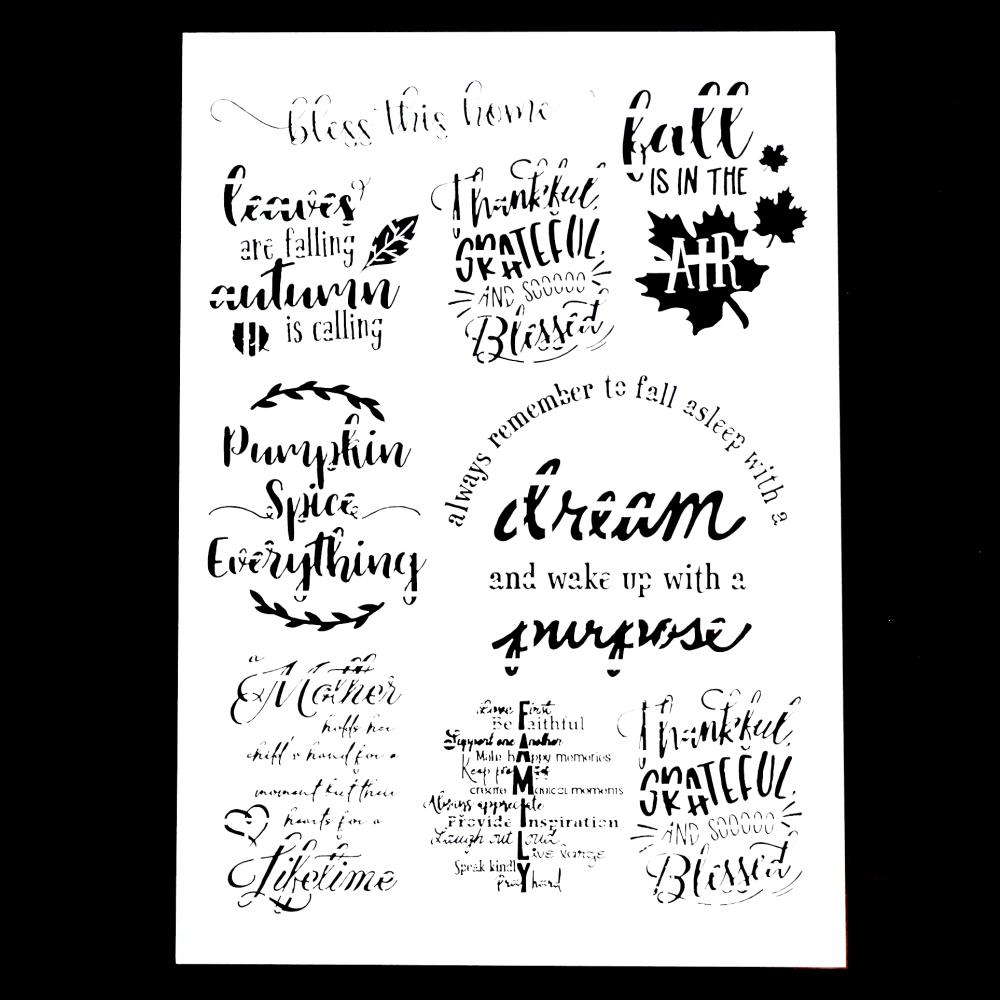 bless this home
fall
IS IN THE
AIR
leaves
are falling
autumn
is calling
Thankful,
GRATEFUL,
AND SOOOOO
Blessed
Pumpkin
Spice
Everything
always remember to fall asleep with a
dream
and wake up with a
purpose
a
Mother
holds her
child's hand for a
moment but their
hearts for a
Lifetime
Love First
Be Faithful
Support one Another
Make happy memories
Keep promises
create Magical moments
Always appreciate
Provide Inspiration
Laugh out loud
Live large
Speak kindly
Pray hard
Thankful,
GRATEFUL,
AND SOOOOO
Blessed